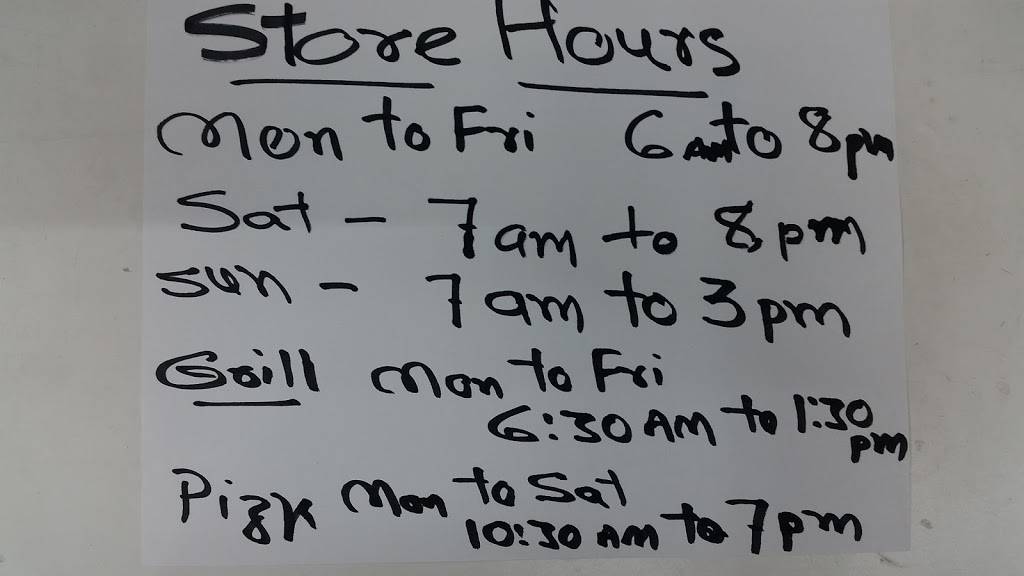 Store Hours
Mon to Fri 6 am to 8 pm
Sat - 7 am to 8 pm
Sun - 7 am to 3 pm
Grill Mon to Fri
6:30 AM to 1:30 pm
Pizza Mon to Sat
10:30 AM to 7 pm